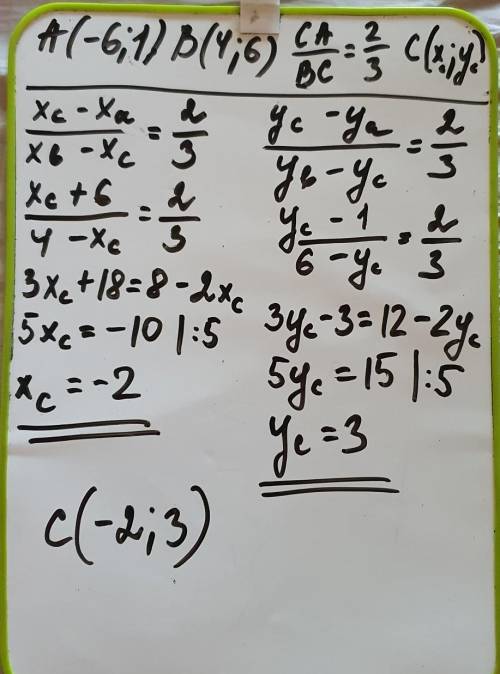 A(-6;1) B(4;6) CA/BC = 2/3 C(x_c;y_c)
(x_c - x_a)/(x_b - x_c) = 2/3
(x_c + 6)/(4 - x_c) = 2/3
3x_c + 18 = 8 - 2x_c
5x_c = -10 |:5
x_c = -2
(y_c - y_a)/(y_b - y_c) = 2/3
(y_c - 1)/(6 - y_c) = 2/3
3y_c - 3 = 12 - 2y_c
5y_c = 15 |:5
y_c = 3
C(-2;3)